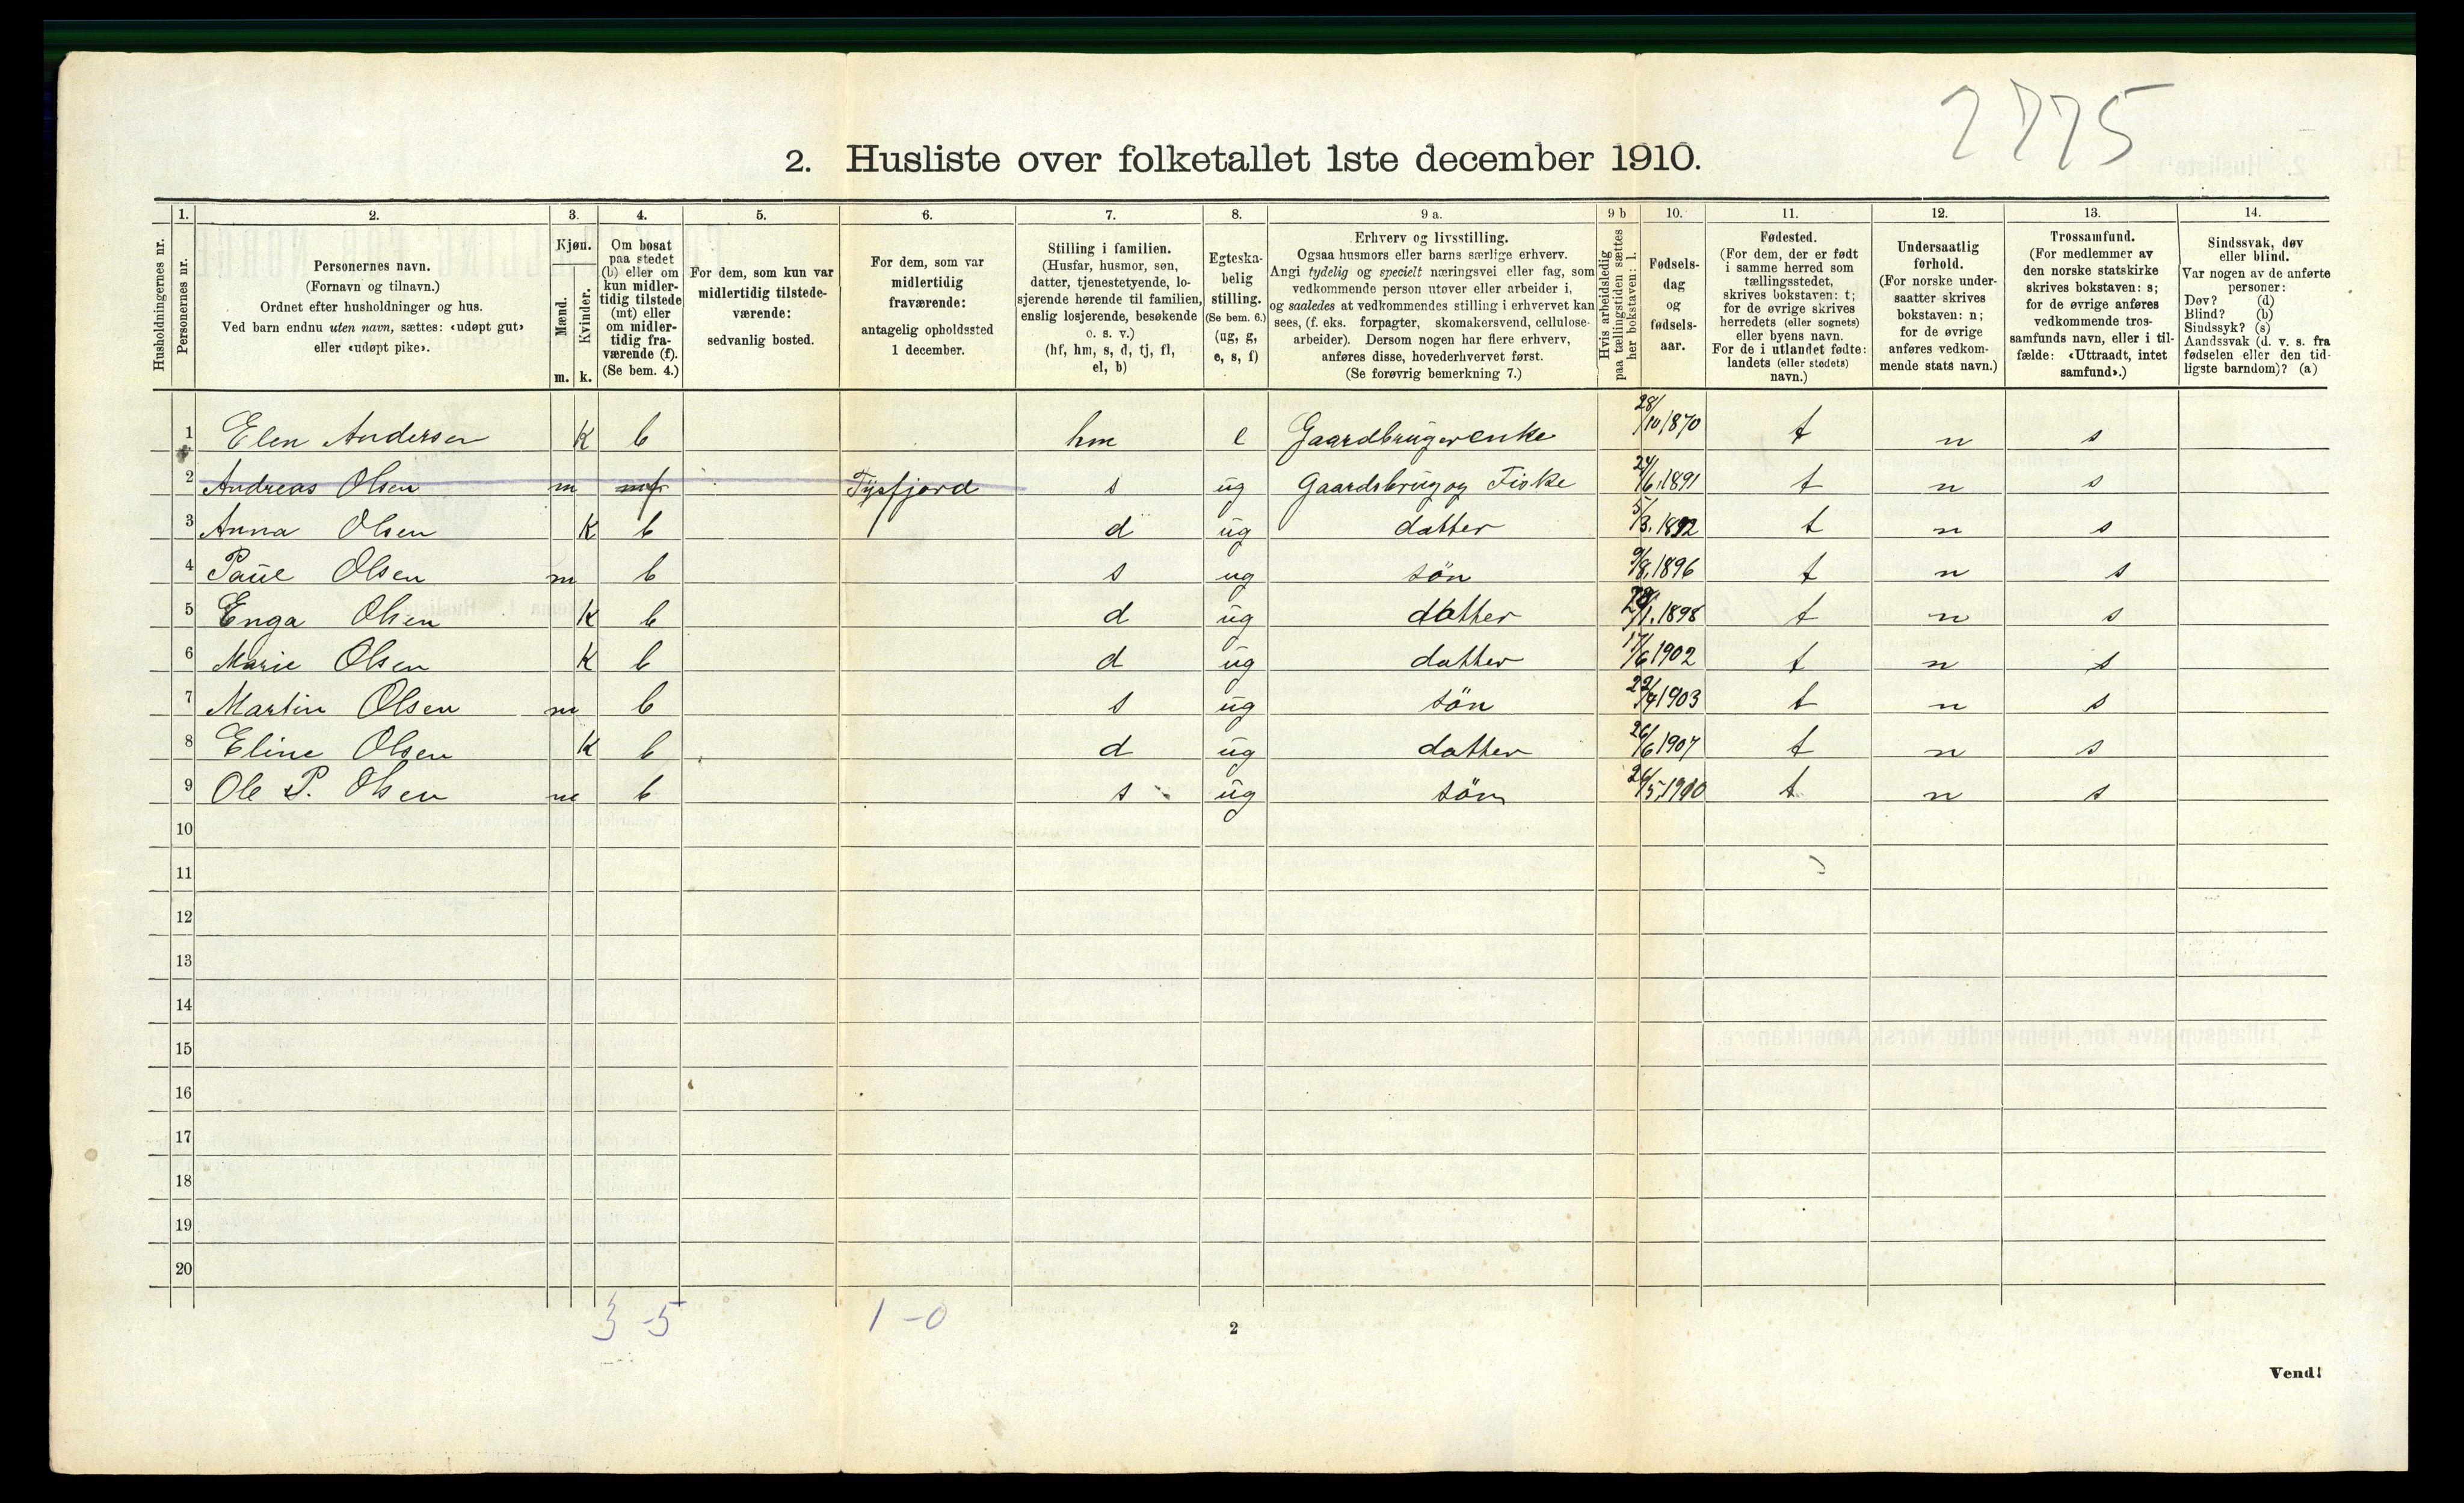 2775
2. Husliste over folketallet 1ste december 1910.
1. 2. 3. 4. 5. 6. 7. 8. 9 a. 9 b 10. 11. 12. 13. 14.
Husholdningernes nr.
Personernes nr.
Personernes navn.
(Fornavn og tilnavn.)
Ordnet efter husholdninger og hus.
Ved barn endnu uten navn, sættes: «udøpt gut»
eller «udøpt pike».
Kjøn.
Mænd.
m.
Kvinder.
k.
Om bosat
paa stedet
(b) eller om
kun midler-
tidig tilstede
(mt) eller
om midler-
tidig fra-
værende (f).
(Se bem. 4.)
For dem, som kun var
midlertidig tilstede-
værende:
sedvanlig bosted.
For dem, som var
midlertidig
fraværende:
antagelig opholdssted
1 december.
Stilling i familien.
(Husfar, husmor, søn,
datter, tjenestetyende, lo-
sjerende hørende til familien,
enslig losjerende, besøkende
o. s. v.)
(hf, hm, s, d, tj, fl,
el, b)
Egteska-
belig
stilling.
(Se bem. 6.)
(ug, g,
e, s, f)
Erhverv og livsstilling.
Ogsaa husmors eller barns særlige erhverv.
Angi tydelig og specielt næringsvei eller fag, som
vedkommende person utøver eller arbeider i,
og saaledes at vedkommendes stilling i erhvervet kan
sees, (f. eks. forpagter, skomakersvend, cellulose-
arbeider). Dersom nogen har flere erhverv,
anføres disse, hovederhvervet først.
(Se forøvrig bemerkning 7.)
Hvis arbeidsledig
paa tællingstiden sættes
her bokstaven: l.
Fødsels-
dag
og
fødsels-
aar.
Fødested.
(For dem, der er født
i samme herred som
tællingsstedet,
skrives bokstaven: t;
for de øvrige skrives
herredets (eller sognets)
eller byens navn.
For de i utlandet fødte:
landets (eller stedets)
navn.)
Undersaatlig
forhold.
(For norske under-
saatter skrives
bokstaven: n;
for de øvrige
anføres vedkom-
mende stats navn.)
Trossamfund.
(For medlemmer av
den norske statskirke
skrives bokstaven: s;
for de øvrige anføres
vedkommende tros-
samfunds navn, eller i til-
fælde: «Uttraadt, intet
samfund».)
Sindssvak, døv
eller blind.
Var nogen av de anførte
personer:
Døv? (d)
Blind? (b)
Sindssyk? (s)
Aandssvak (d. v. s. fra
fødselen eller den tid-
ligste barndom)? (a)
1 Elen Andersen K b hm e Gaardbrugerenke 28/10 1870 t n s
2 Andreas Olsen m f Tysfjord s ug Gaardsbrug og Fiske 24/6.1891 t n s
3 Anna Olsen K b d ug datter 5/3.1892 t n s
4 Paul Olsen m b s ug søn 9/8.1896 t n s
5 Enga Olsen K b d ug datter /1.1898 t n s
6 Marie Olsen K b d ug datter 17/6 1902 t n s
7 Martin Olsen m b s ug søn 22/4 1903 t n s
8 Eline Olsen K b d ug datter 26/6 1907 t n s
9 Ole P. Olsen m b s ug søn 26/5.1910 t n s
10
11
12
13
14
15
16
17
18
19
20
3 - 5 1 - 0
2
Vend!